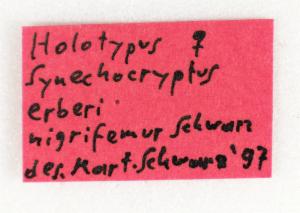 Holotypus ♀
Synechocryptus
erberi
nigrifemur Schwarz
des. Mart. Schwarz '97